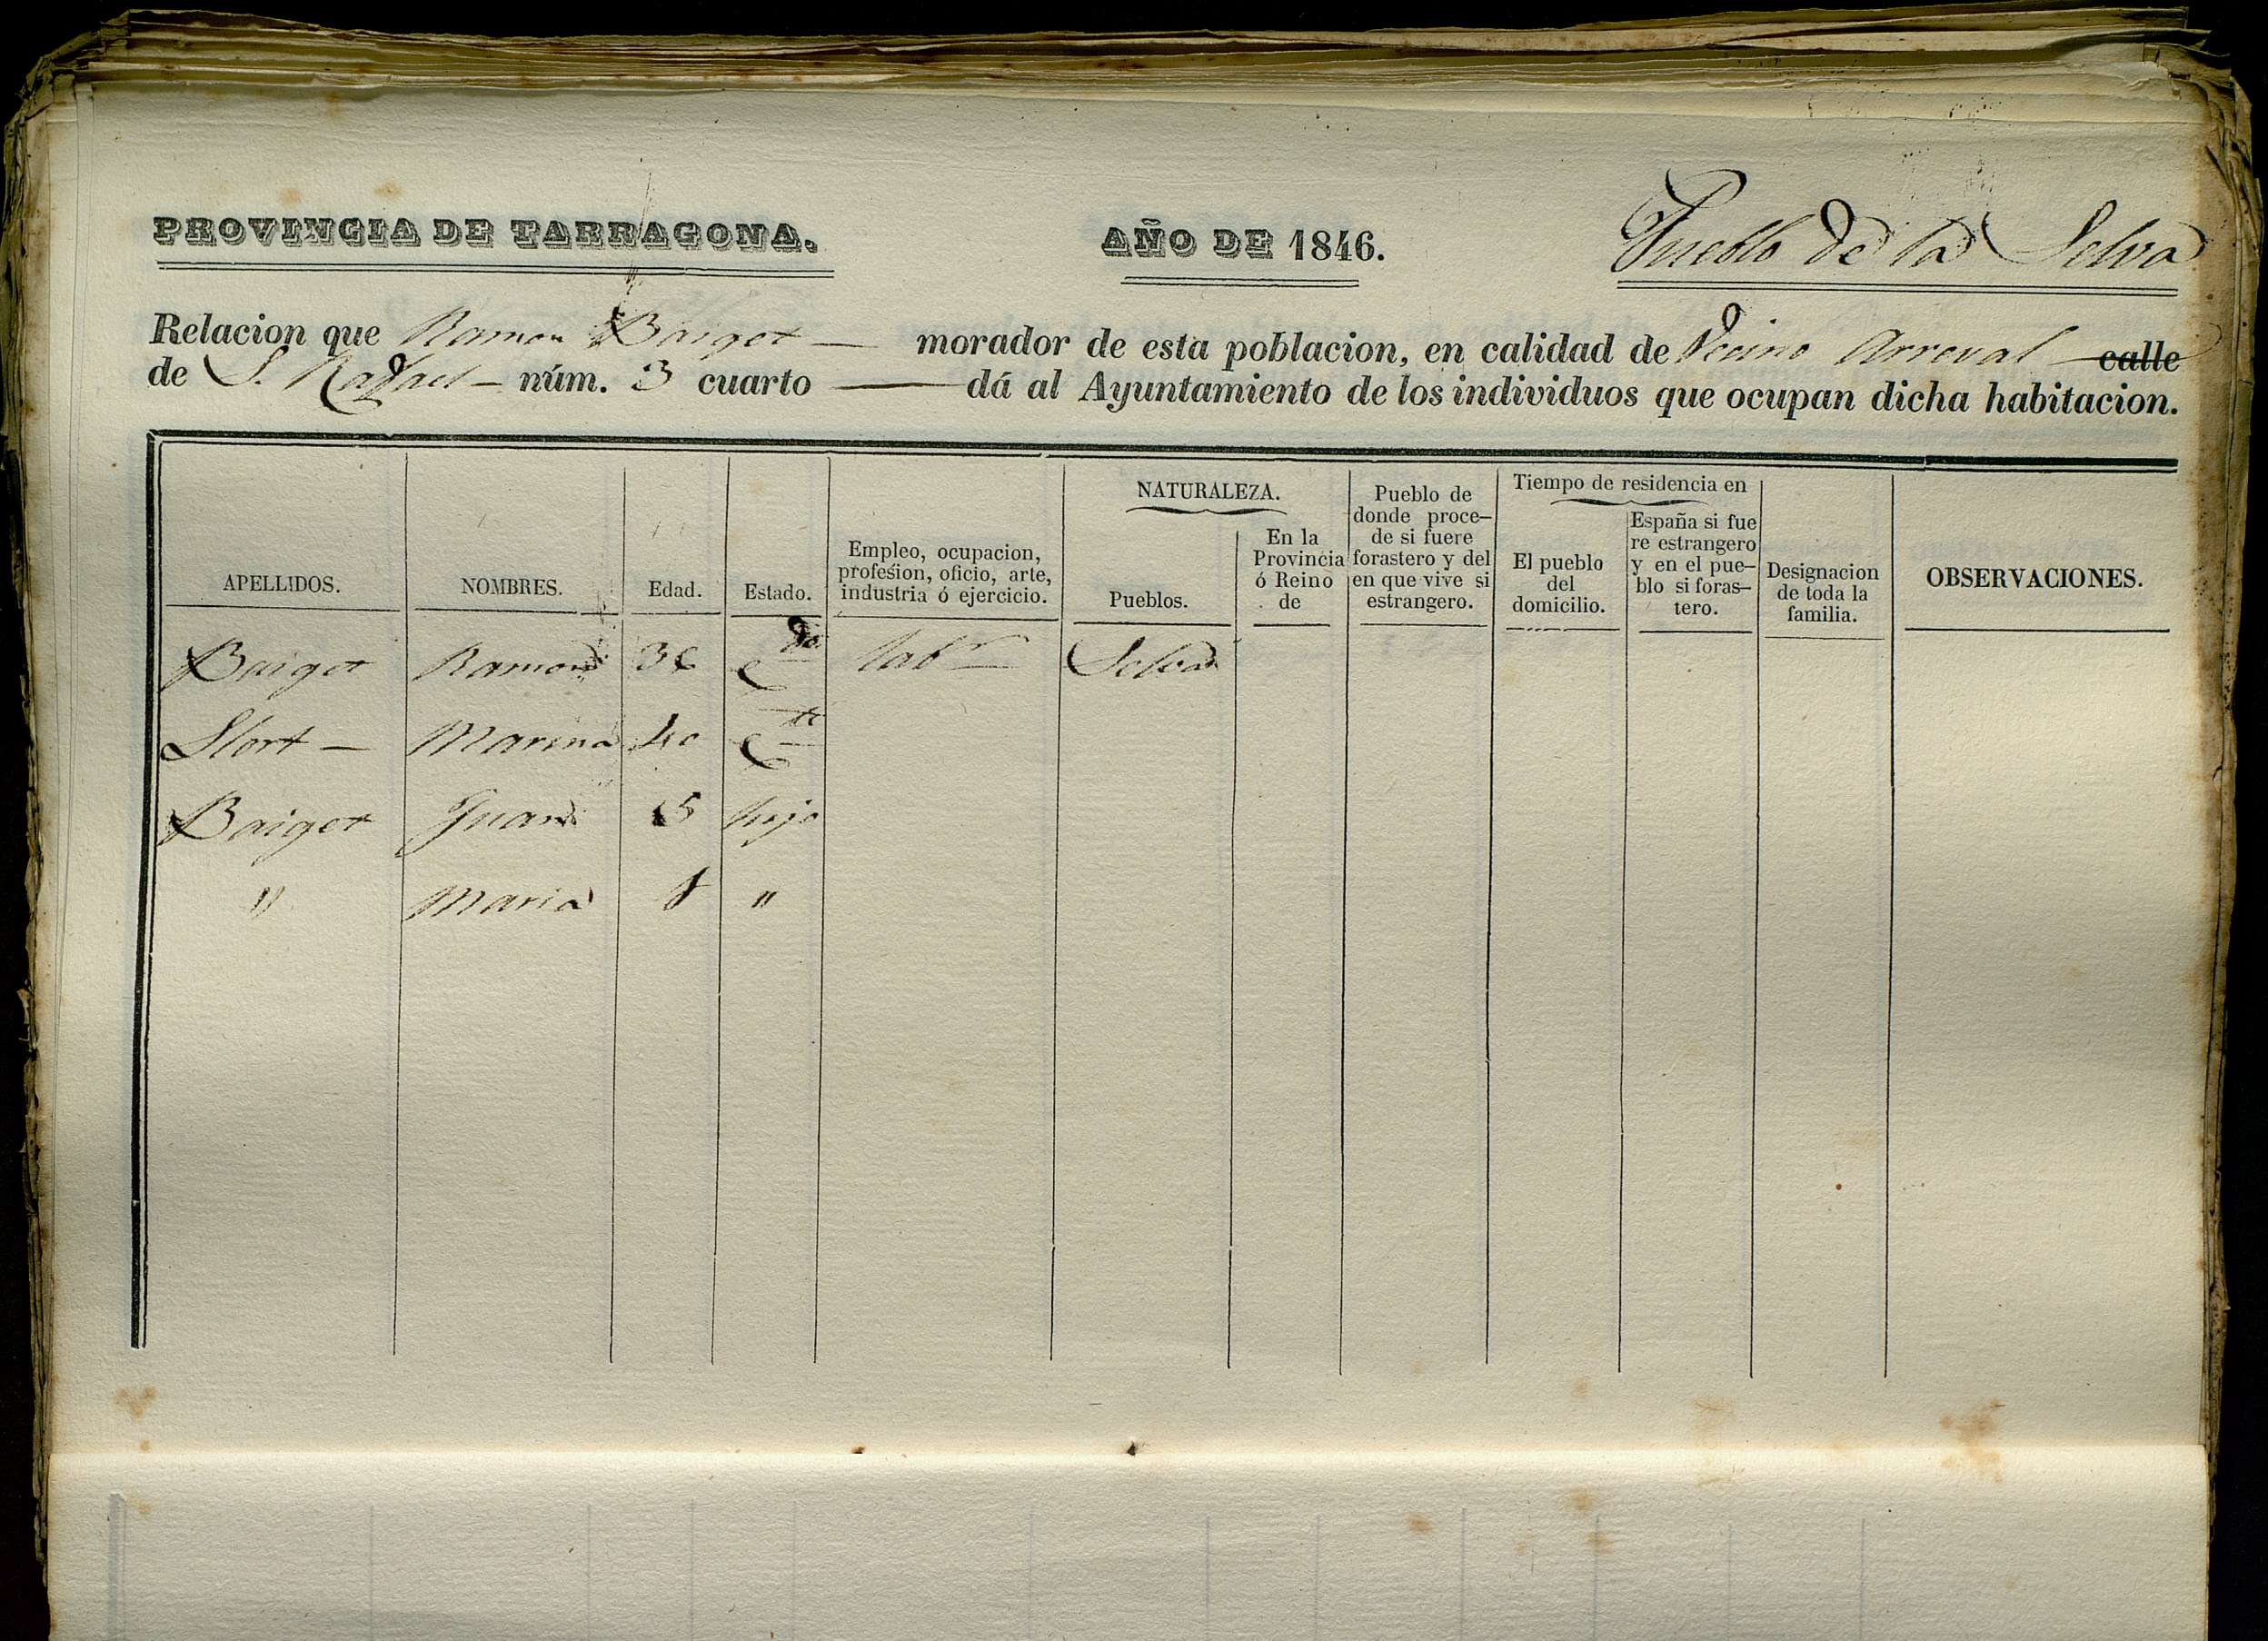 PROVINCIA DE TARRAGONA. AÑO DE 1846. Pueblo de la Selva
Relacion que Ramon Baiget — morador de esta poblacion, en calidad de Vecino Arreval calle
de S. Rafael — núm. 3 cuarto — dá al Ayuntamiento de los individuos que ocupan dicha habitacion.
APELLIDOS.
NOMBRES.
Edad.
Estado.
Empleo, ocupacion,
profesion, oficio, arte,
industria ó ejercicio.
NATURALEZA.
Pueblos.
En la
Provincia
ó Reino
de
Pueblo de
donde proce-
de si fuere
forastero y del
en que vive si
estrangero.
Tiempo de residencia en
El pueblo
del
domicilio.
España si fue
re estrangero
y en el pue-
blo si foras-
tero.
Designacion
de toda la
familia.
OBSERVACIONES.
Baiget Ramon 36 Cdo labr Selva
Llort — Marina 40 C
Baiget Juan 15 hijo
" Maria 8 "